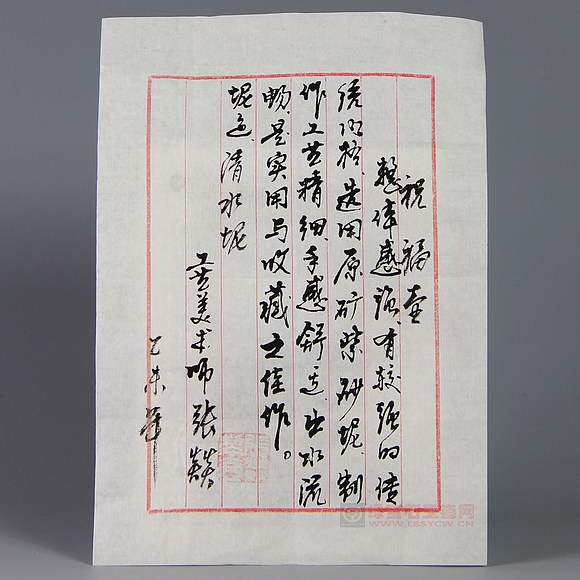 祝福壶
整体感强、有较强的传
统风格、选用原矿紫砂坭、制
作工艺精细、手感舒适、出水流
畅、是实用与收藏之佳作。
坭色、清水坭
工艺美术师张燚
乙未年
WWW.EBSYCW.CN